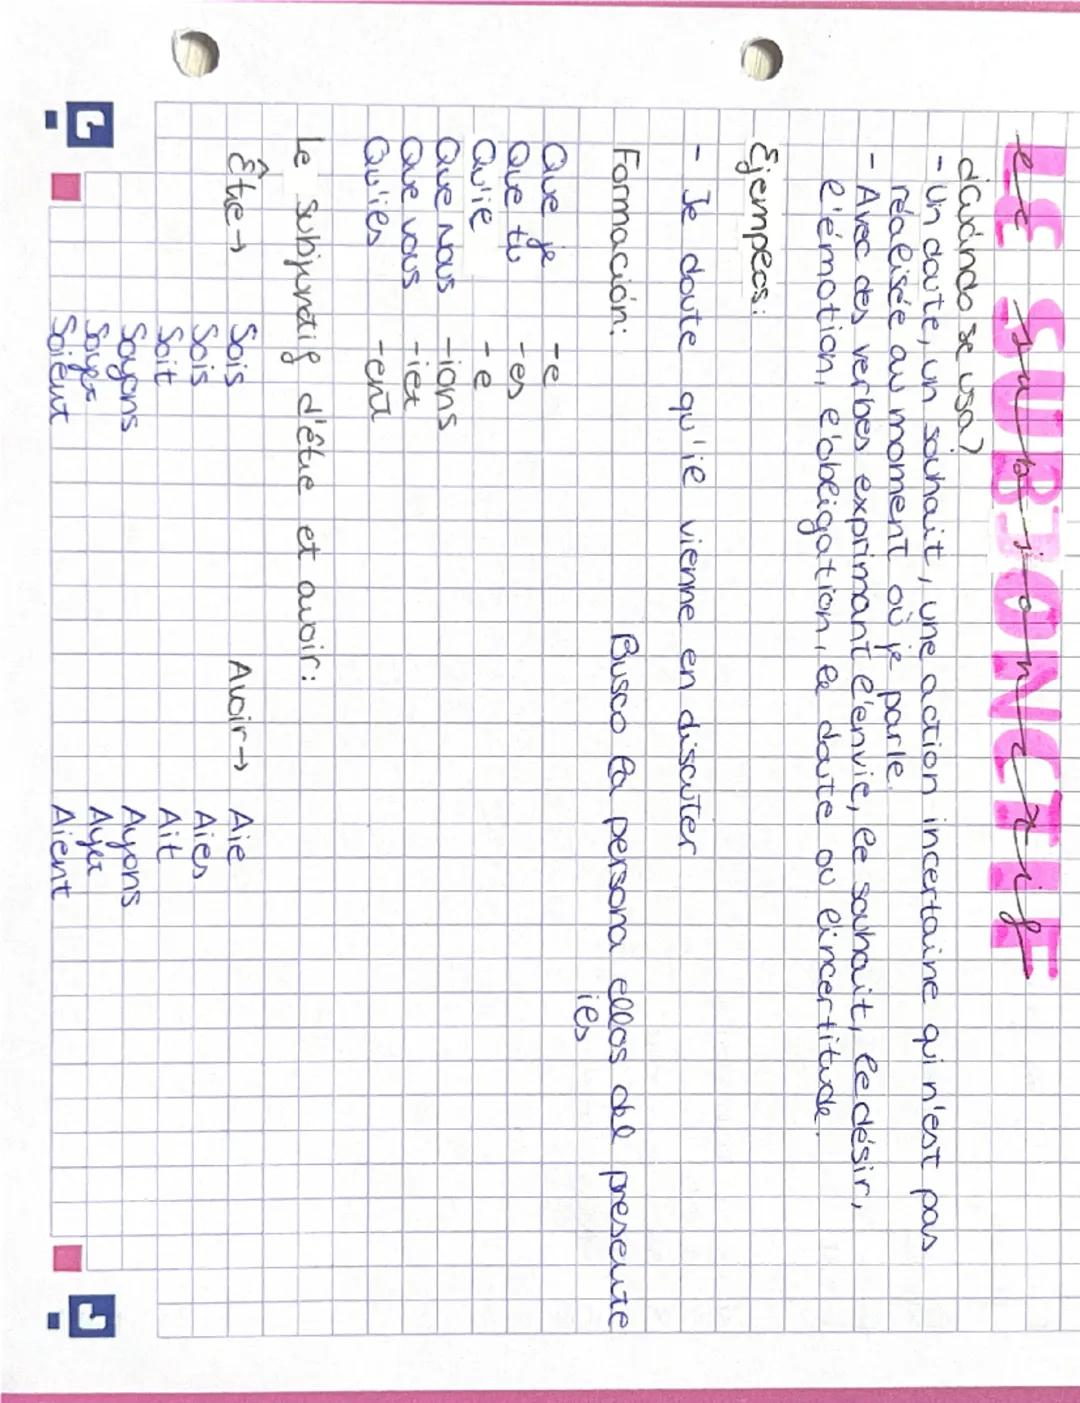 LE SUBJONCTIF
le subjonctif
¿Cuándo se usa?
- Un doute, un souhait, une action incertaine qui n'est pas
réalisée au moment où je parle.
- Avec des verbes exprimant l'envie, le souhait, le désir,
l'émotion, l'obligation, le doute ou l'incertitude.
Ejemplos:
- Je doute qu'il vienne en discuter
Formación:
Busco la persona ellos del presente
iles
Que je -e
Que tu -es
Qu'il -e
Que nous -ions
Que vous -iez
Qu'iles -ent
Le subjonctif d'être et avoir:
Être → Sois
Sois
Soit
Soyons
Soyez
Soient
Avoir → Aie
Aies
Ait
Ayons
Ayez
Aient